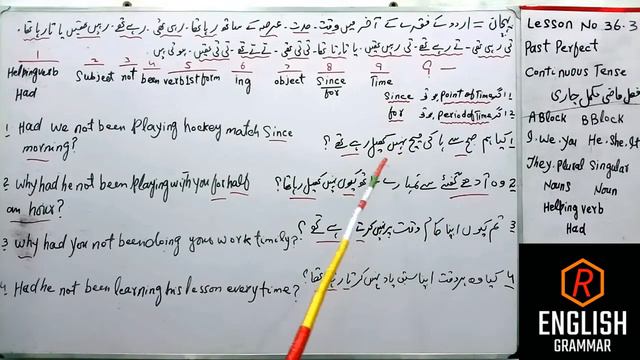 پہچان = اردو کے فقرے کے آخر میں وقت۔ مدت۔ عرصہ کے ساتھ رہا تھا۔ رہی تھی۔ رہے تھے۔ رہیں تھیں یا تا رہا تھا۔
تی رہی تھی۔ تے رہے تھے۔ تی رہیں تھیں۔ یا تا تھا۔ تی تھی۔ تے تھے۔ تی تھیں۔ ہوتی ہیں
1 2 3 4 5 6 7 8 9 ? —
Helping verb Subject not been verb 1st form ing object Since Time
Had for
1 اگر Point of Time ہو تو Since
2 اگر Period of Time ہو تو for
1 Had we not been Playing hockey match Since
morning?
1 کیا ہم صبح سے ہاکی میچ نہیں کھیل رہے تھے ؟
2 Why had he not been Playing with you for half
an hour?
2 وہ آدھے گھنٹے سے تمہارے ساتھ کیوں نہیں کھیل رہا تھا ؟
3 Why had you not been doing your work timely?
3 تم کیوں اپنا کام وقت پر نہیں کرتے رہے تھے ؟
4 Had he not been learning his lesson every time?
4 کیا وہ ہر وقت اپنا سبق یاد نہیں کرتا رہا تھا ؟
Lesson No 36.3
Past Perfect
Continuous Tense
فعل ماضی مکمل جاری
A Block B Block
I. We. You He. She. It
They. Plural Singular
Nouns Noun
Helping verb
Had
R
ENGLISH
GRAMMAR